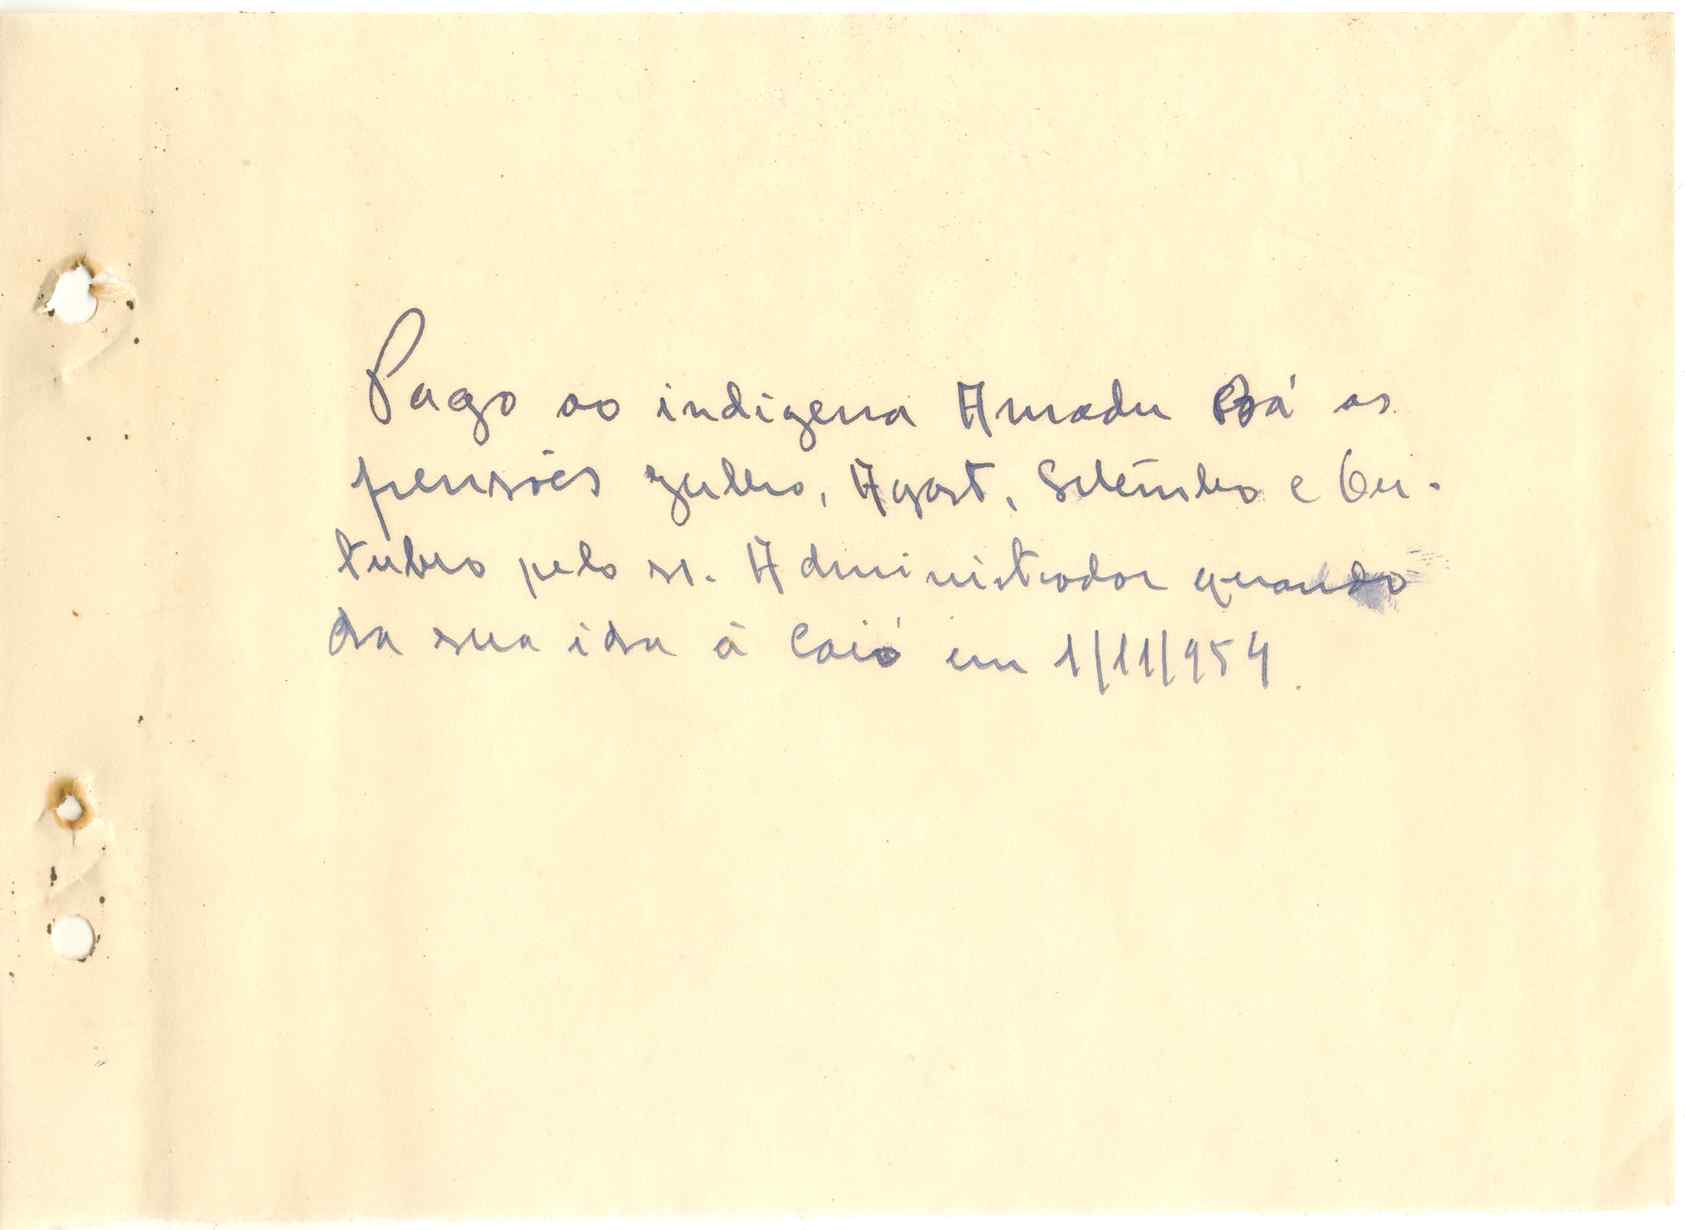 Pago ao indigena Amadu Bá as
pensões Julho, Agost, Setêmbro e Ou-
tubro pelo sr. Administrador quando
da sua ida à Caió em 1/11/954.